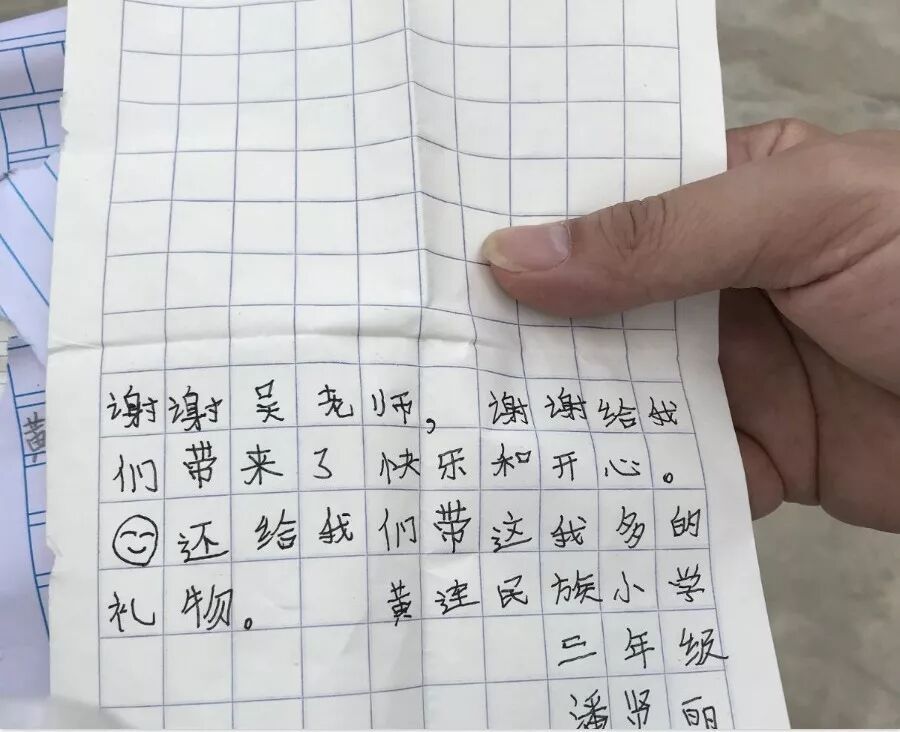 谢谢吴老师，谢谢给我
们带来了快乐和开心。
还给我们带这我多的
礼物。 黄连民族小学
三年级
潘贤丽
黄